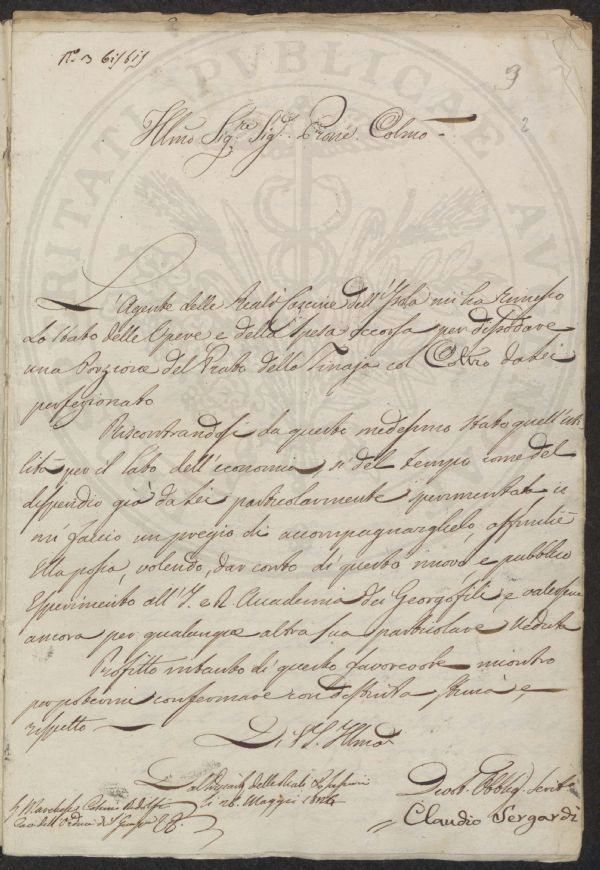 N.º 3 bis/bis
3
2
Illmo Sig.re Sig.r Prone Colmo
L'Agente delle Reali Cascine dell'Isola mi ha rimesso
lo stato delle Opere e della Spesa occorsa per dissodare
una Porzione del Prato della Tinaja col Coltro da Lei
perfezionato
Riscontrandosi da questo medesimo stato quell'uti
lità per il lato dell'economia sì del tempo come del
dispendio già da Lei particolarmente sperimentata io
mi faccio un pregio di accompagnarglielo, affinchè
Ella possa, volendo, dar conto di questo nuovo e pubblico
Esperimento all'I. e R. Accademia dei Georgofili, e valersene
ancora per qualunque altra sua particolare veduta
Profitto intanto di questo favorevole incontro
per potermi confermare con distinta stima e
rispetto
Di V.S. Illma
Dallo delle Reali
Li 26. Maggio
Devot. Obblig. Serv.
Claudio Sergardi
S.r Marchese Cosimo Ridolfi
Cav. dell'Ordine di S. Giuseppe
VERITATI PVBLICAE